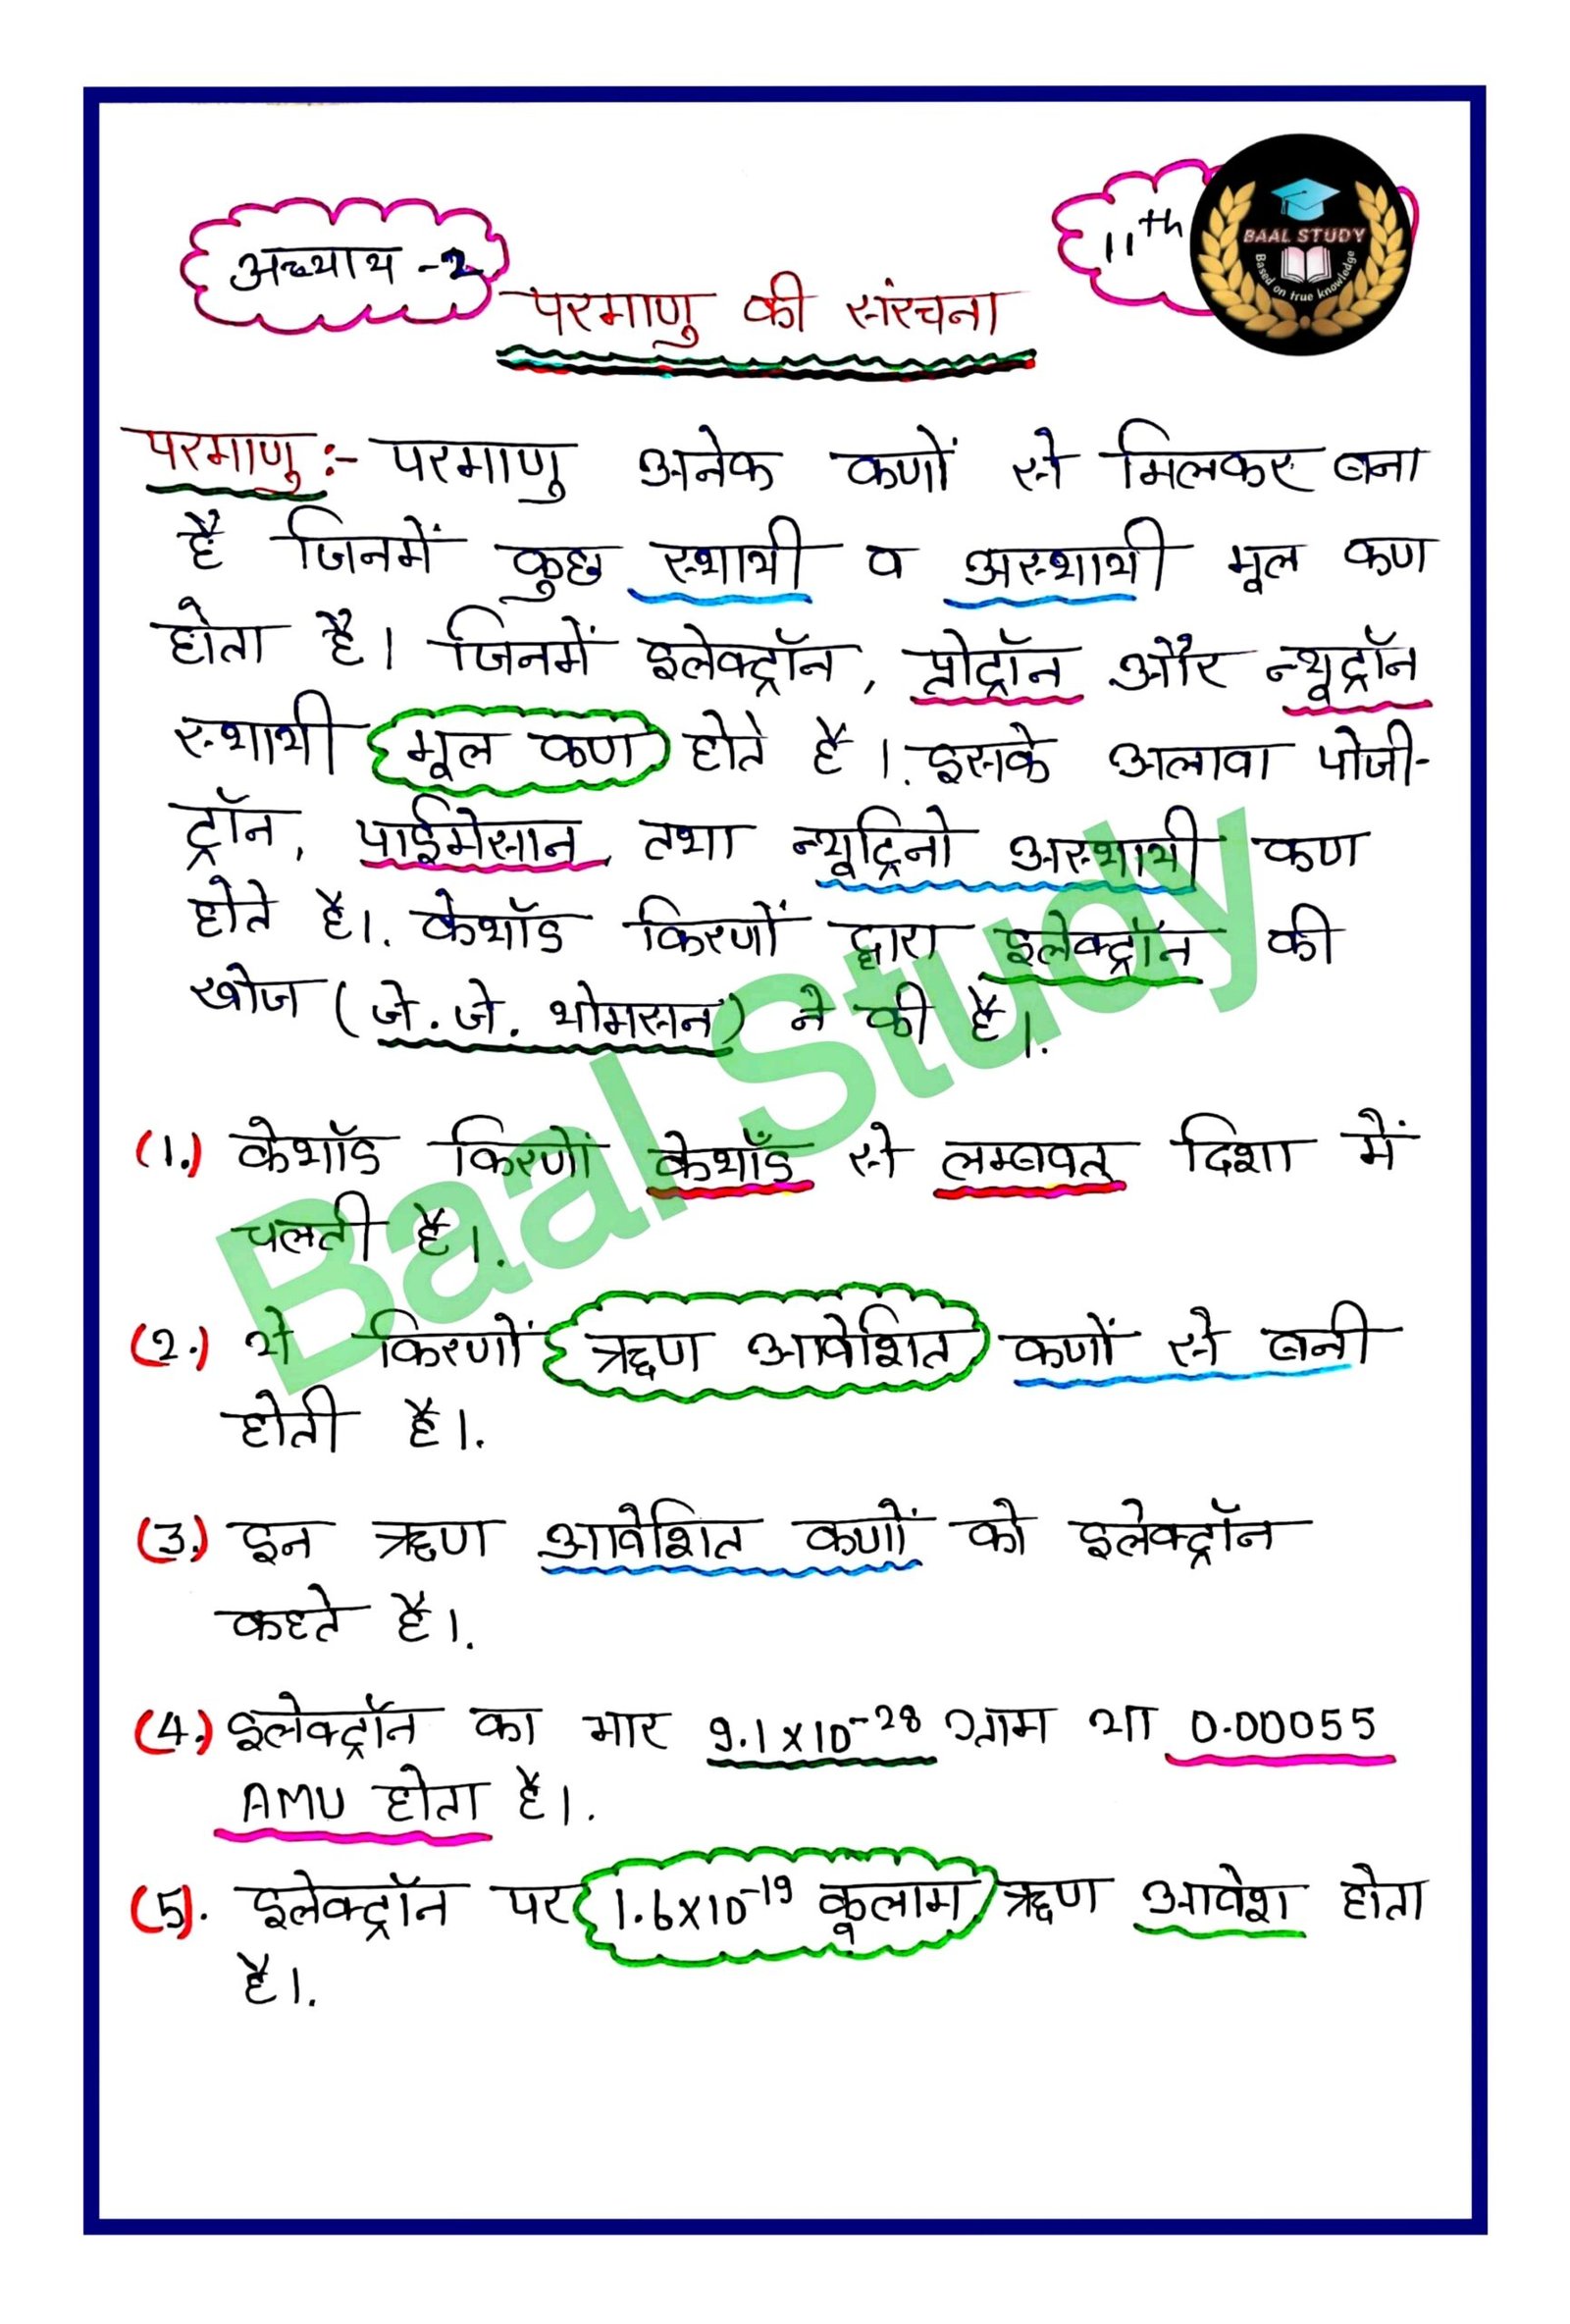 अध्याय -2
11th
BAAL STUDY
Based on true knowledge
परमाणु की संरचना
परमाणु :- परमाणु अनेक कणों से मिलकर बना
है जिनमें कुछ स्थायी व अस्थायी मूल कण
होता है। जिनमें इलेक्ट्रॉन, प्रोट्रॉन और न्यूट्रॉन
स्थायी मूल कण होते है।. इसके अलावा पोजी-
ट्रॉन, पाईमेसान तथा न्यूट्रिनो अस्थायी कण
होते है।. केथॉड किरणों द्वारा इलेक्ट्रॉन की
खोज (जे.जे. थोमसन) ने की है।.
(1.) केथॉड किरणों केथॉड से लम्बवत् दिशा में
चलती है।.
(2.) ये किरणों ऋण आवेशित कणों से बनी
होती है।.
(3.) इन ऋण आवेशित कणों को इलेक्ट्रॉन
कहते है।.
(4.) इलेक्ट्रॉन का भार 9.1x10⁻²⁸ ग्राम या 0.00055
AMU होता है।.
(5). इलेक्ट्रॉन पर 1.6x10⁻¹⁹ कूलाम ऋण आवेश होता
है।.
Baal Study